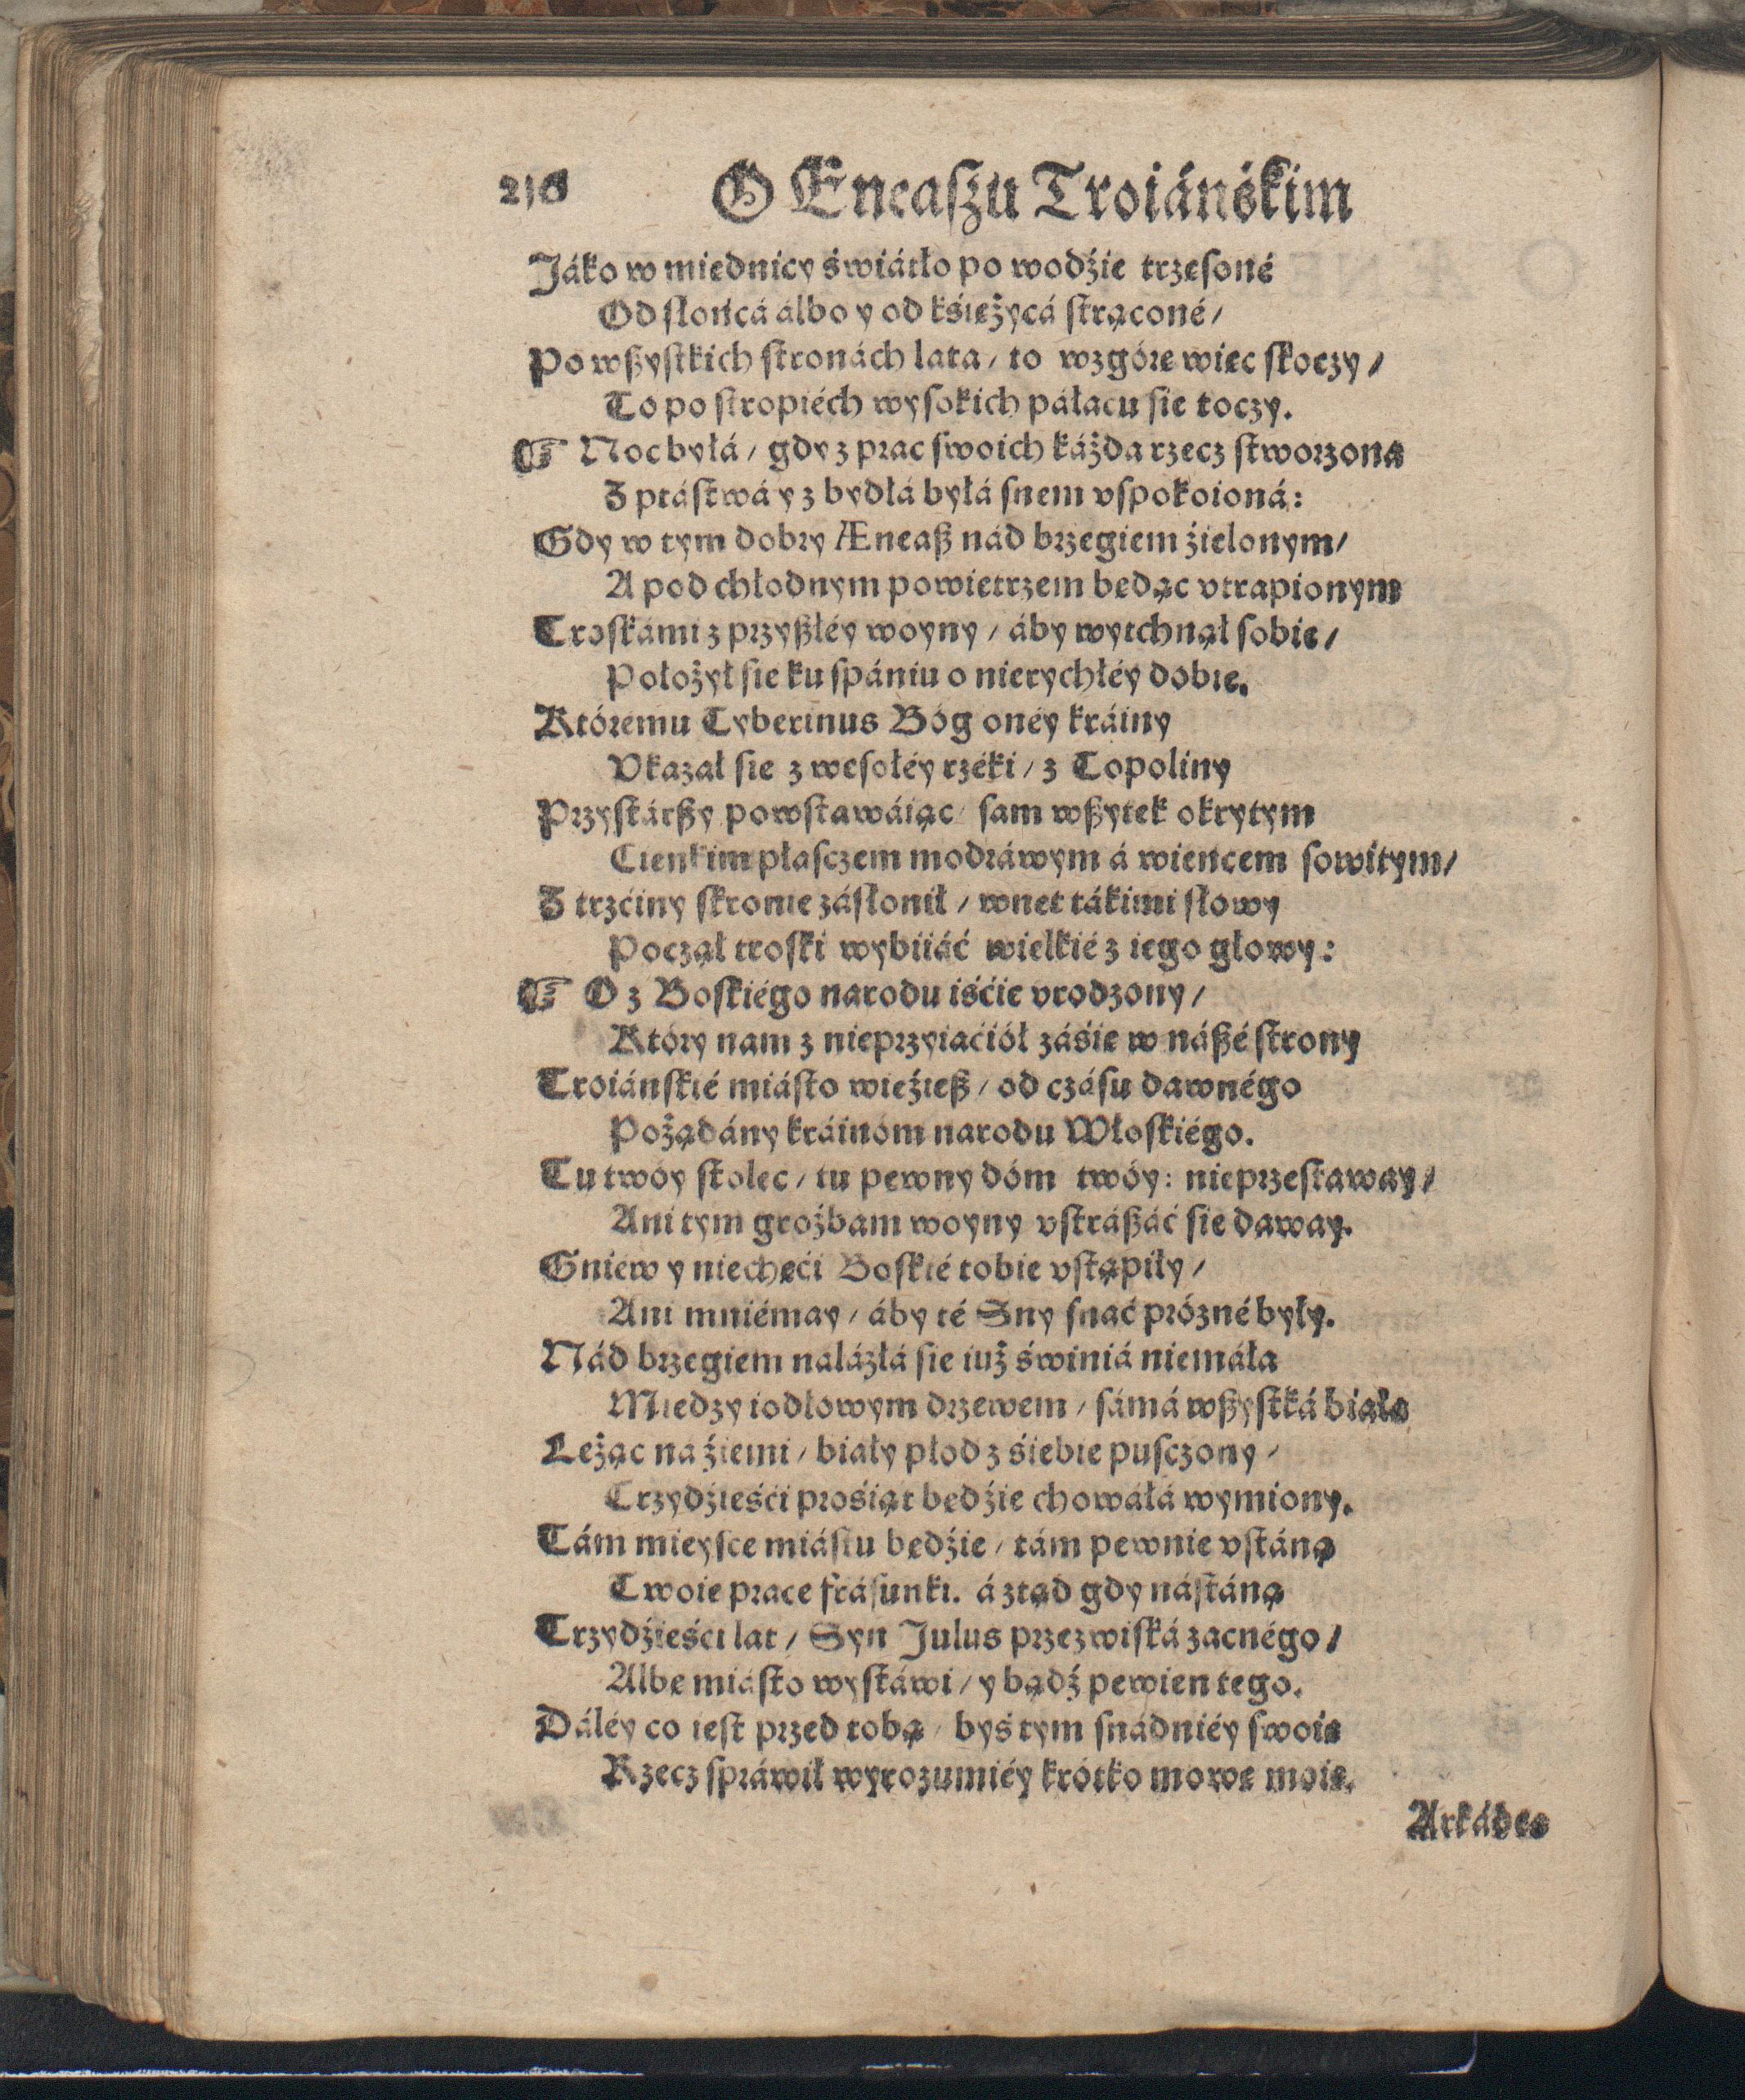 216 O Eneaszu Troiáńśkim
Jáko w miednicy świátło po wodźie trzęsoné
Od słońcá álbo y od kśiężycá strąconé/
Po wßystkich stronách lata/ to wzgórę więc skoczy/
To po stropiéch wysokich páłacu sie toczy.
☞ Noc byłá/ gdy z prac swoich káżda rzecz stworzona
Z ptástwá y z bydłá byłá snem vspokoioná:
Gdy w tym dobry Æneaß nád brzegiem źielonym/
A pod chłodnym powietrzem będąc vtrapionym
Troskámi z przyßłéy woyny/ áby wytchnął sobie/
Położył sie ku spániu o nierychłéy dobie.
Którému Tyberinus Bóg onéy kráiny
Vkazał sie z wesołéy rzéki/ z Topoliny
Przystárßy powstawáiąc/ sam wßytek okrytym
Cienkim płasczem modráwym á wieńcem sowitym/
Z trzćiny skronie zásłonił/ wnet tákimi słowy
Począł troski wybiiáć wielkié z iego głowy:
☞ O z Boskiégo narodu iśćie vrodzony/
Który nam z nieprzyiaćiół záśię w náßé strony
Troiáńskié miásto wieźieß/ od czásu dawnégo
Pożądány kráinóm narodu Włoskiégo.
Tu twóy stolec/ tu pewny dóm twóy: nieprzestaway/
Ani tym groźbam woyny vstráßáć sie daway.
Gniéw y niechęći Boskié tobie vstąpiły/
Ani mniémay/ áby té Sny snać prózné były.
Nád brzegiem nalázłá sie iuż świniá niemáła
Miedzy iodłowym drzewem/ sámá wßystká biała
Leżąc na źiemi/ biały płod z śiebie pusczony/
Trzydźieśći prośiąt będźie chowáłá wymiony.
Tám mieysce miástu będźie/ tám pewnie vstáną
Twoie prace frásunki. á ztąd gdy nástáną
Trzydźieśći lat/ Syn Julus przezwiská zacnégo/
Albę miásto wystáwi/ y bądź pewien tego.
Dáléy co iest przed tobą/ byś tym snádniéy swoię
Rzecz spráwił wyrozumiéy krótko mowę moię.
Arkádes